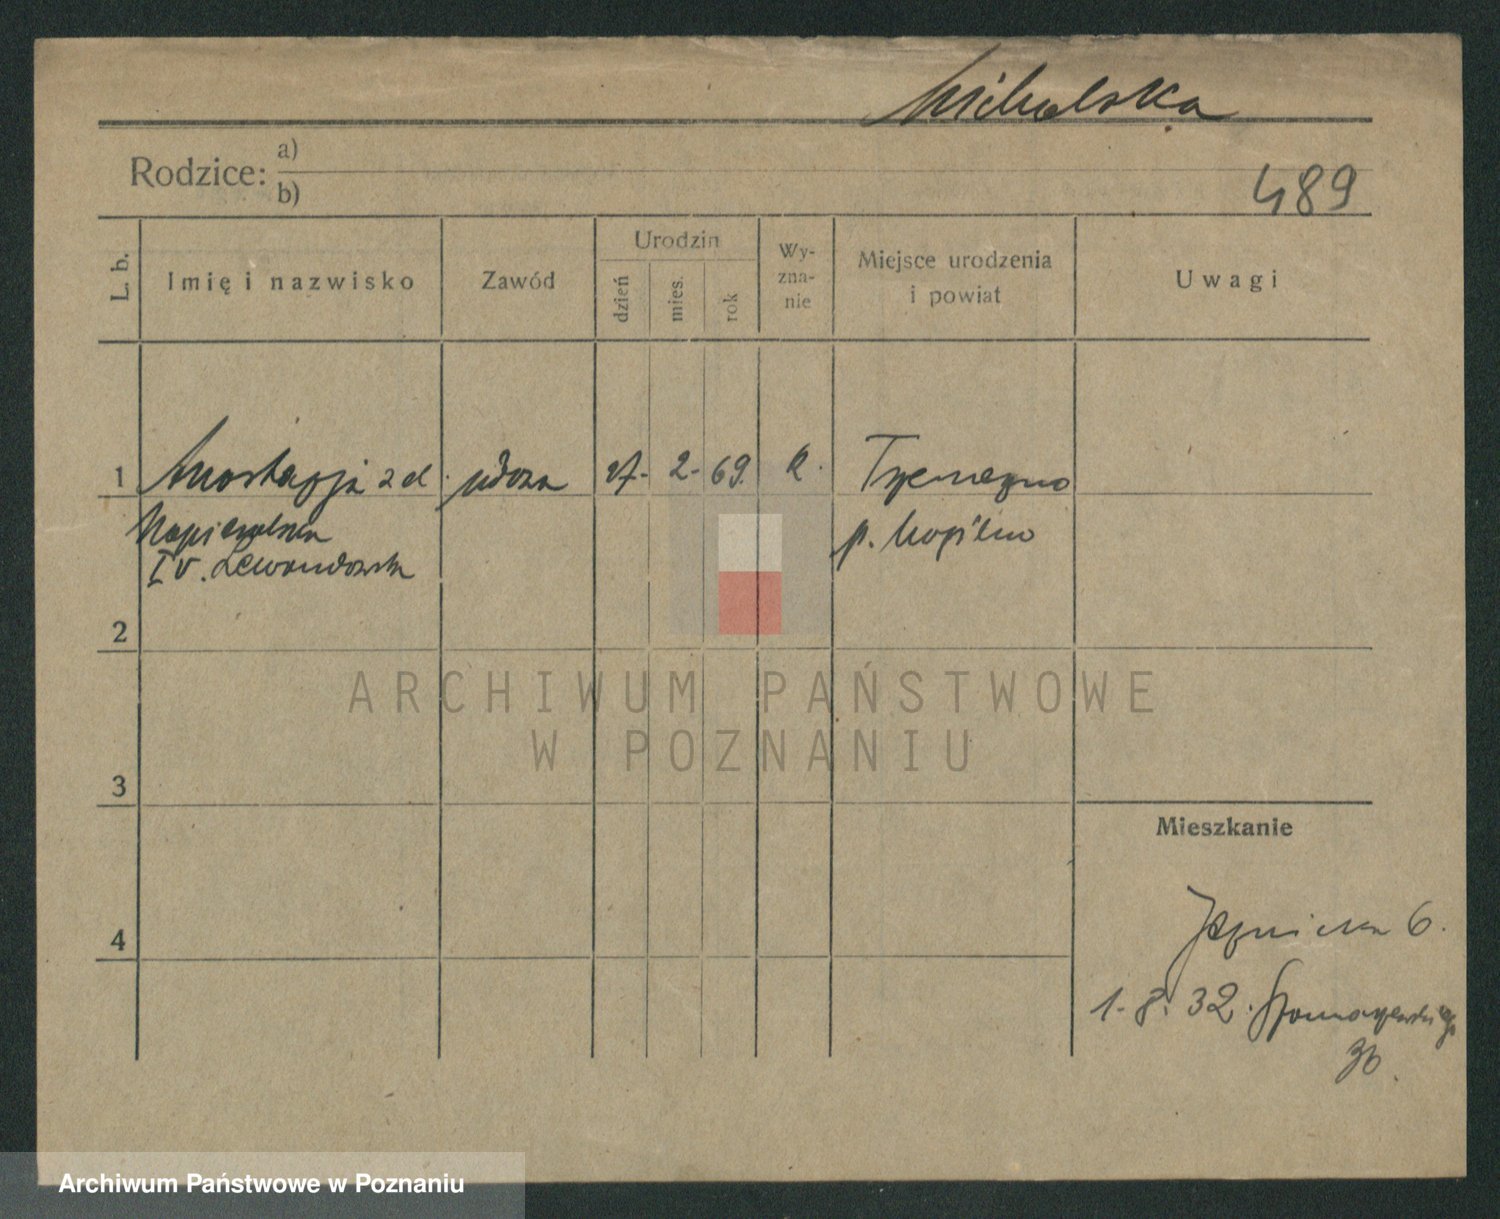 Mikulska
Rodzice: a)
b)
489
L. b.
Imię i nazwisko
Zawód
Urodzin
dzień
mies.
rok
Wy-
zna-
nie
Miejsce urodzenia
i powiat
Uwagi
1
Anastazja z d.
wdowa
27. 2. 69.
k.
Trzemeszno
Napieralska
p. Mogilno
I v. Lewandowska
2
3
4
ARCHIWUM PAŃSTWOWE
W POZNANIU
Mieszkanie
6.
1. 8. 32.
Archiwum Państwowe w Poznaniu